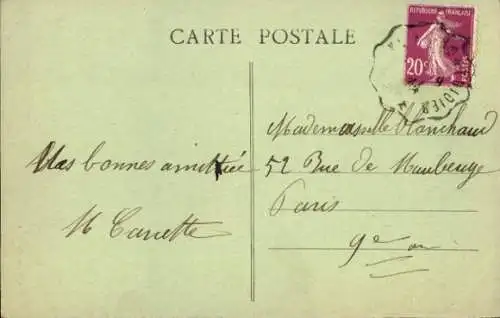 CARTE POSTALE
REPUBLIQUE FRANÇAISE
20c
POSTES
Mes bonnes amitiée
M Canette
Mademoiselle Blanchaud
52 Rue de Maubeuge
Paris
9e